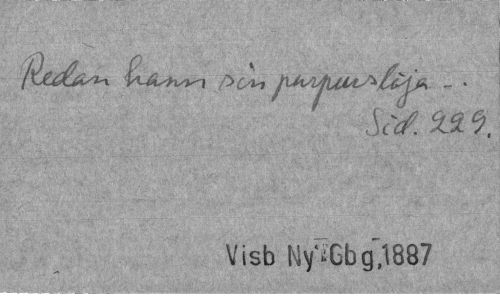 Redan hann sin purpurslöja – .
Sid. 229.
Visb Ny Gbg, 1887